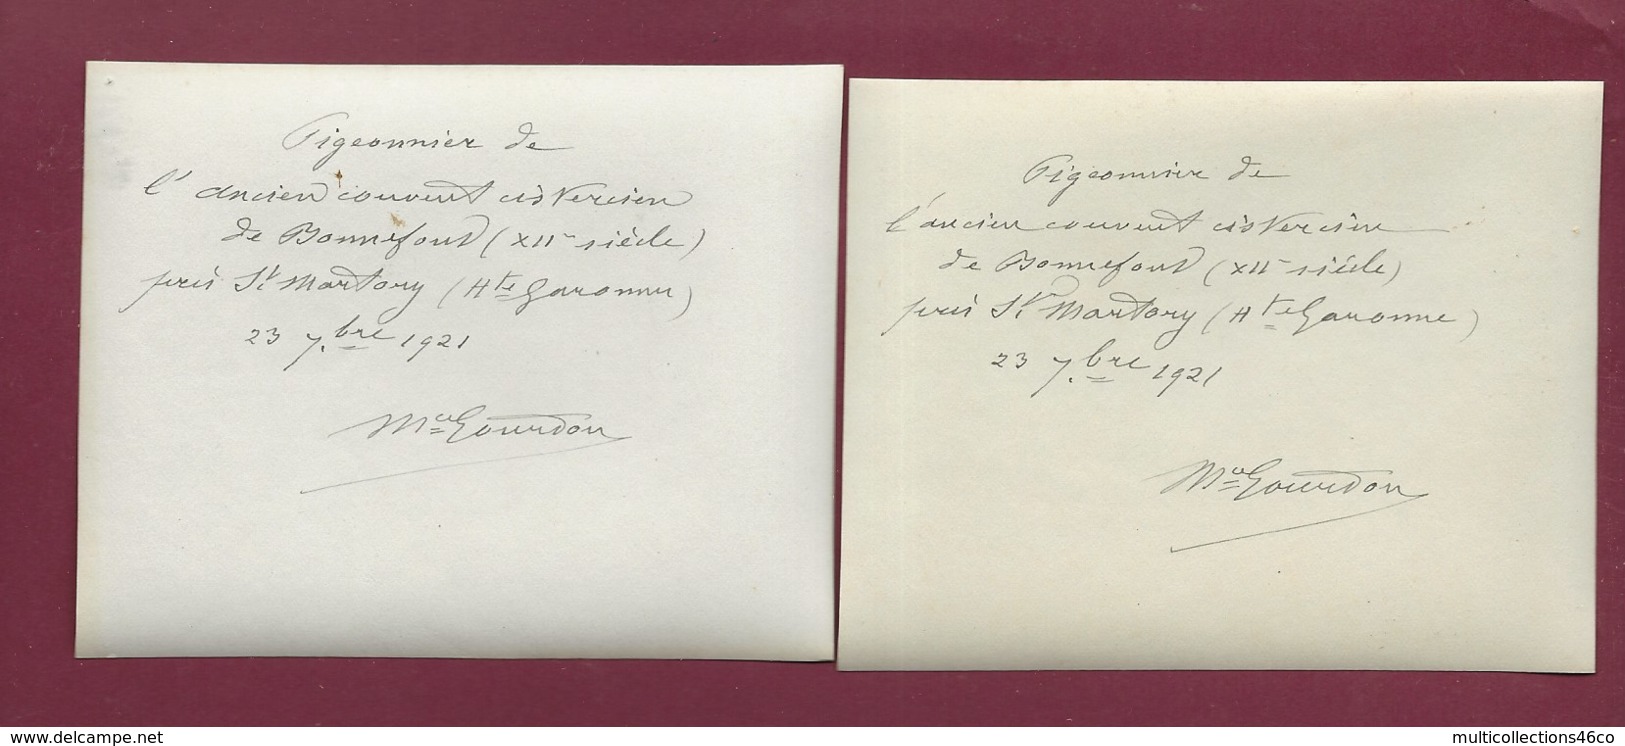 Pigeonnier de
l'ancien couvent cistercien
de Bonnefont (XIIe siècle)
près St Martory (Hte Garonne)
23 7.bre 1921
Mce Gourdon
Pigeonnier de
l'ancien couvent cistercien
de Bonnefont (XIIe siècle)
près St Martory (Hte Garonne)
23 7.bre 1921
Mce Gourdon
www.delcampe.net
multicollections46co